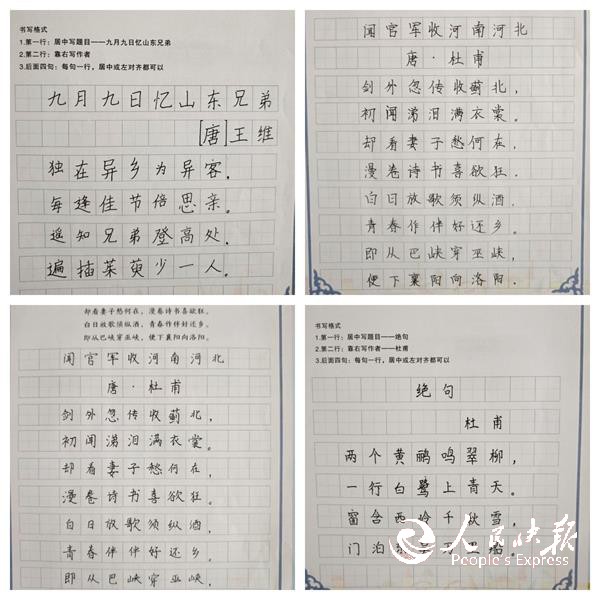 书写格式
1.第一行：居中写题目——九月九日忆山东兄弟
2.第二行：靠右写作者
3.后面四句：每句一行，居中或左对齐都可以
九月九日忆山东兄弟
[唐]王维
独在异乡为异客，
每逢佳节倍思亲。
遥知兄弟登高处，
遍插茱萸少一人。
闻官军收河南河北
唐·杜甫
剑外忽传收蓟北，
初闻涕泪满衣裳。
却看妻子愁何在，
漫卷诗书喜欲狂。
白日放歌须纵酒，
青春作伴好还乡。
即从巴峡穿巫峡，
便下襄阳向洛阳。
却看妻子愁何在，漫卷诗书喜欲狂。
白日放歌须纵酒，青春作伴好还乡。
即从巴峡穿巫峡，便下襄阳向洛阳。
闻官军收河南河北
唐·杜甫
剑外忽传收蓟北，
初闻涕泪满衣裳。
却看妻子愁何在，
漫卷诗书喜欲狂。
白日放歌须纵酒，
青春伴伴好还乡。
即从巴峡穿巫峡，
书写格式
1.第一行：居中写题目——绝句
2.第二行：靠右写作者——杜甫
3.后面四句：每句一行，居中或左对齐都可以
绝句
杜甫
两个黄鹂鸣翠柳，
一行白鹭上青天。
窗含西岭千秋雪，
门泊
人民快报
People's Express